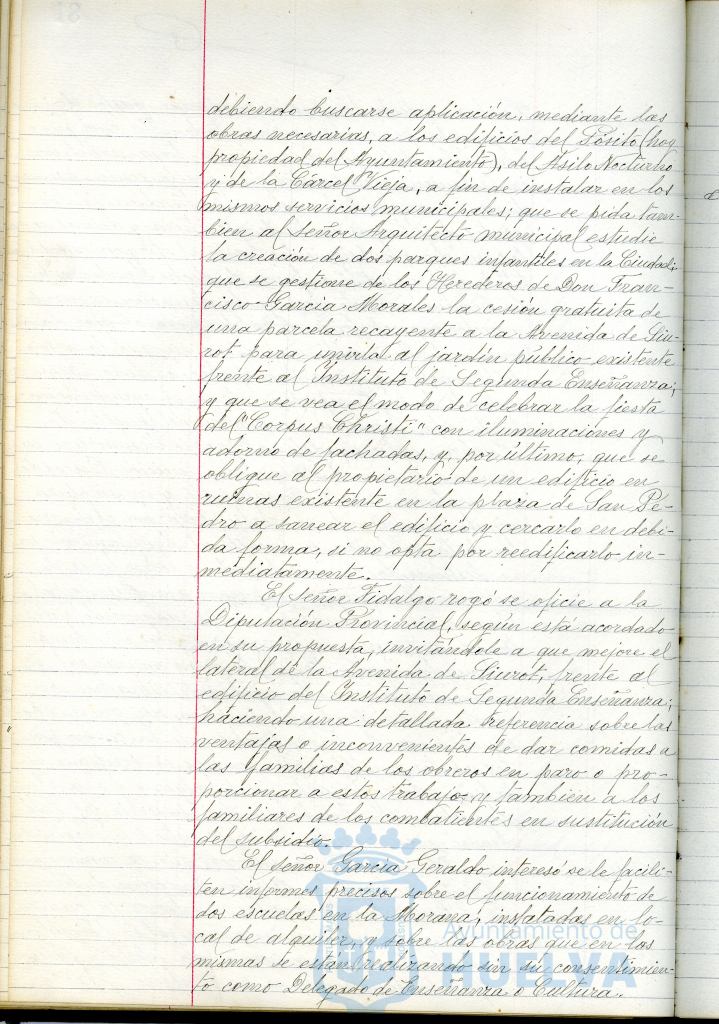 debiendo buscarse aplicación, mediante las
obras necesarias, a los edificios del Pósito (hoy
propiedad del Ayuntamiento), del Asilo Nocturno
y de la Cárcel Vieja, a fin de instalar en los
mismos servicios municipales; que se pida tam-
bien al Señor Arquitecto municipal estudie
la creación de dos parques infantiles en la Ciudad;
que se gestione de los Herederos de Don Fran-
cisco García Morales la cesión gratuita de
una parcela recayente a la Avenida de Siu-
rot para unirla al jardín público existente
frente al Instituto de Segunda Enseñanza;
y que se vea el modo de celebrar la fiesta
del "Corpus Christi" con iluminaciones y
adorno de fachadas, y, por último, que se
obligue al propietario de un edificio en
ruinas existente en la plaza de San Pe-
dro a sanear el edificio y cercarlo en debi-
da forma, si no opta por reedificarlo in-
mediatamente.
El Señor Fidalgo rogó se oficie a la
Diputación Provincial, según está acordado
en su propuesta, invitándole a que mejore el
lateral de la Avenida de Siurot, frente al
edificio del Instituto de Segunda Enseñanza;
haciendo una detallada referencia sobre las
ventajas o inconvenientes de dar comidas a
las familias de los obreros en paro o pro-
porcionar a estos trabajo, y tambien a los
familiares de los combatientes en sustitución
del subsidio.
El señor García Geraldo interesó se le facili-
ten informes precisos sobre el funcionamiento de
dos escuelas en la Morana, instaladas en lo-
cal de alquiler, y sobre las obras que en las
mismas se están realizando sin su consentimien-
to como Delegado de Enseñanza o Cultura.
Ayuntamiento de
HUELVA